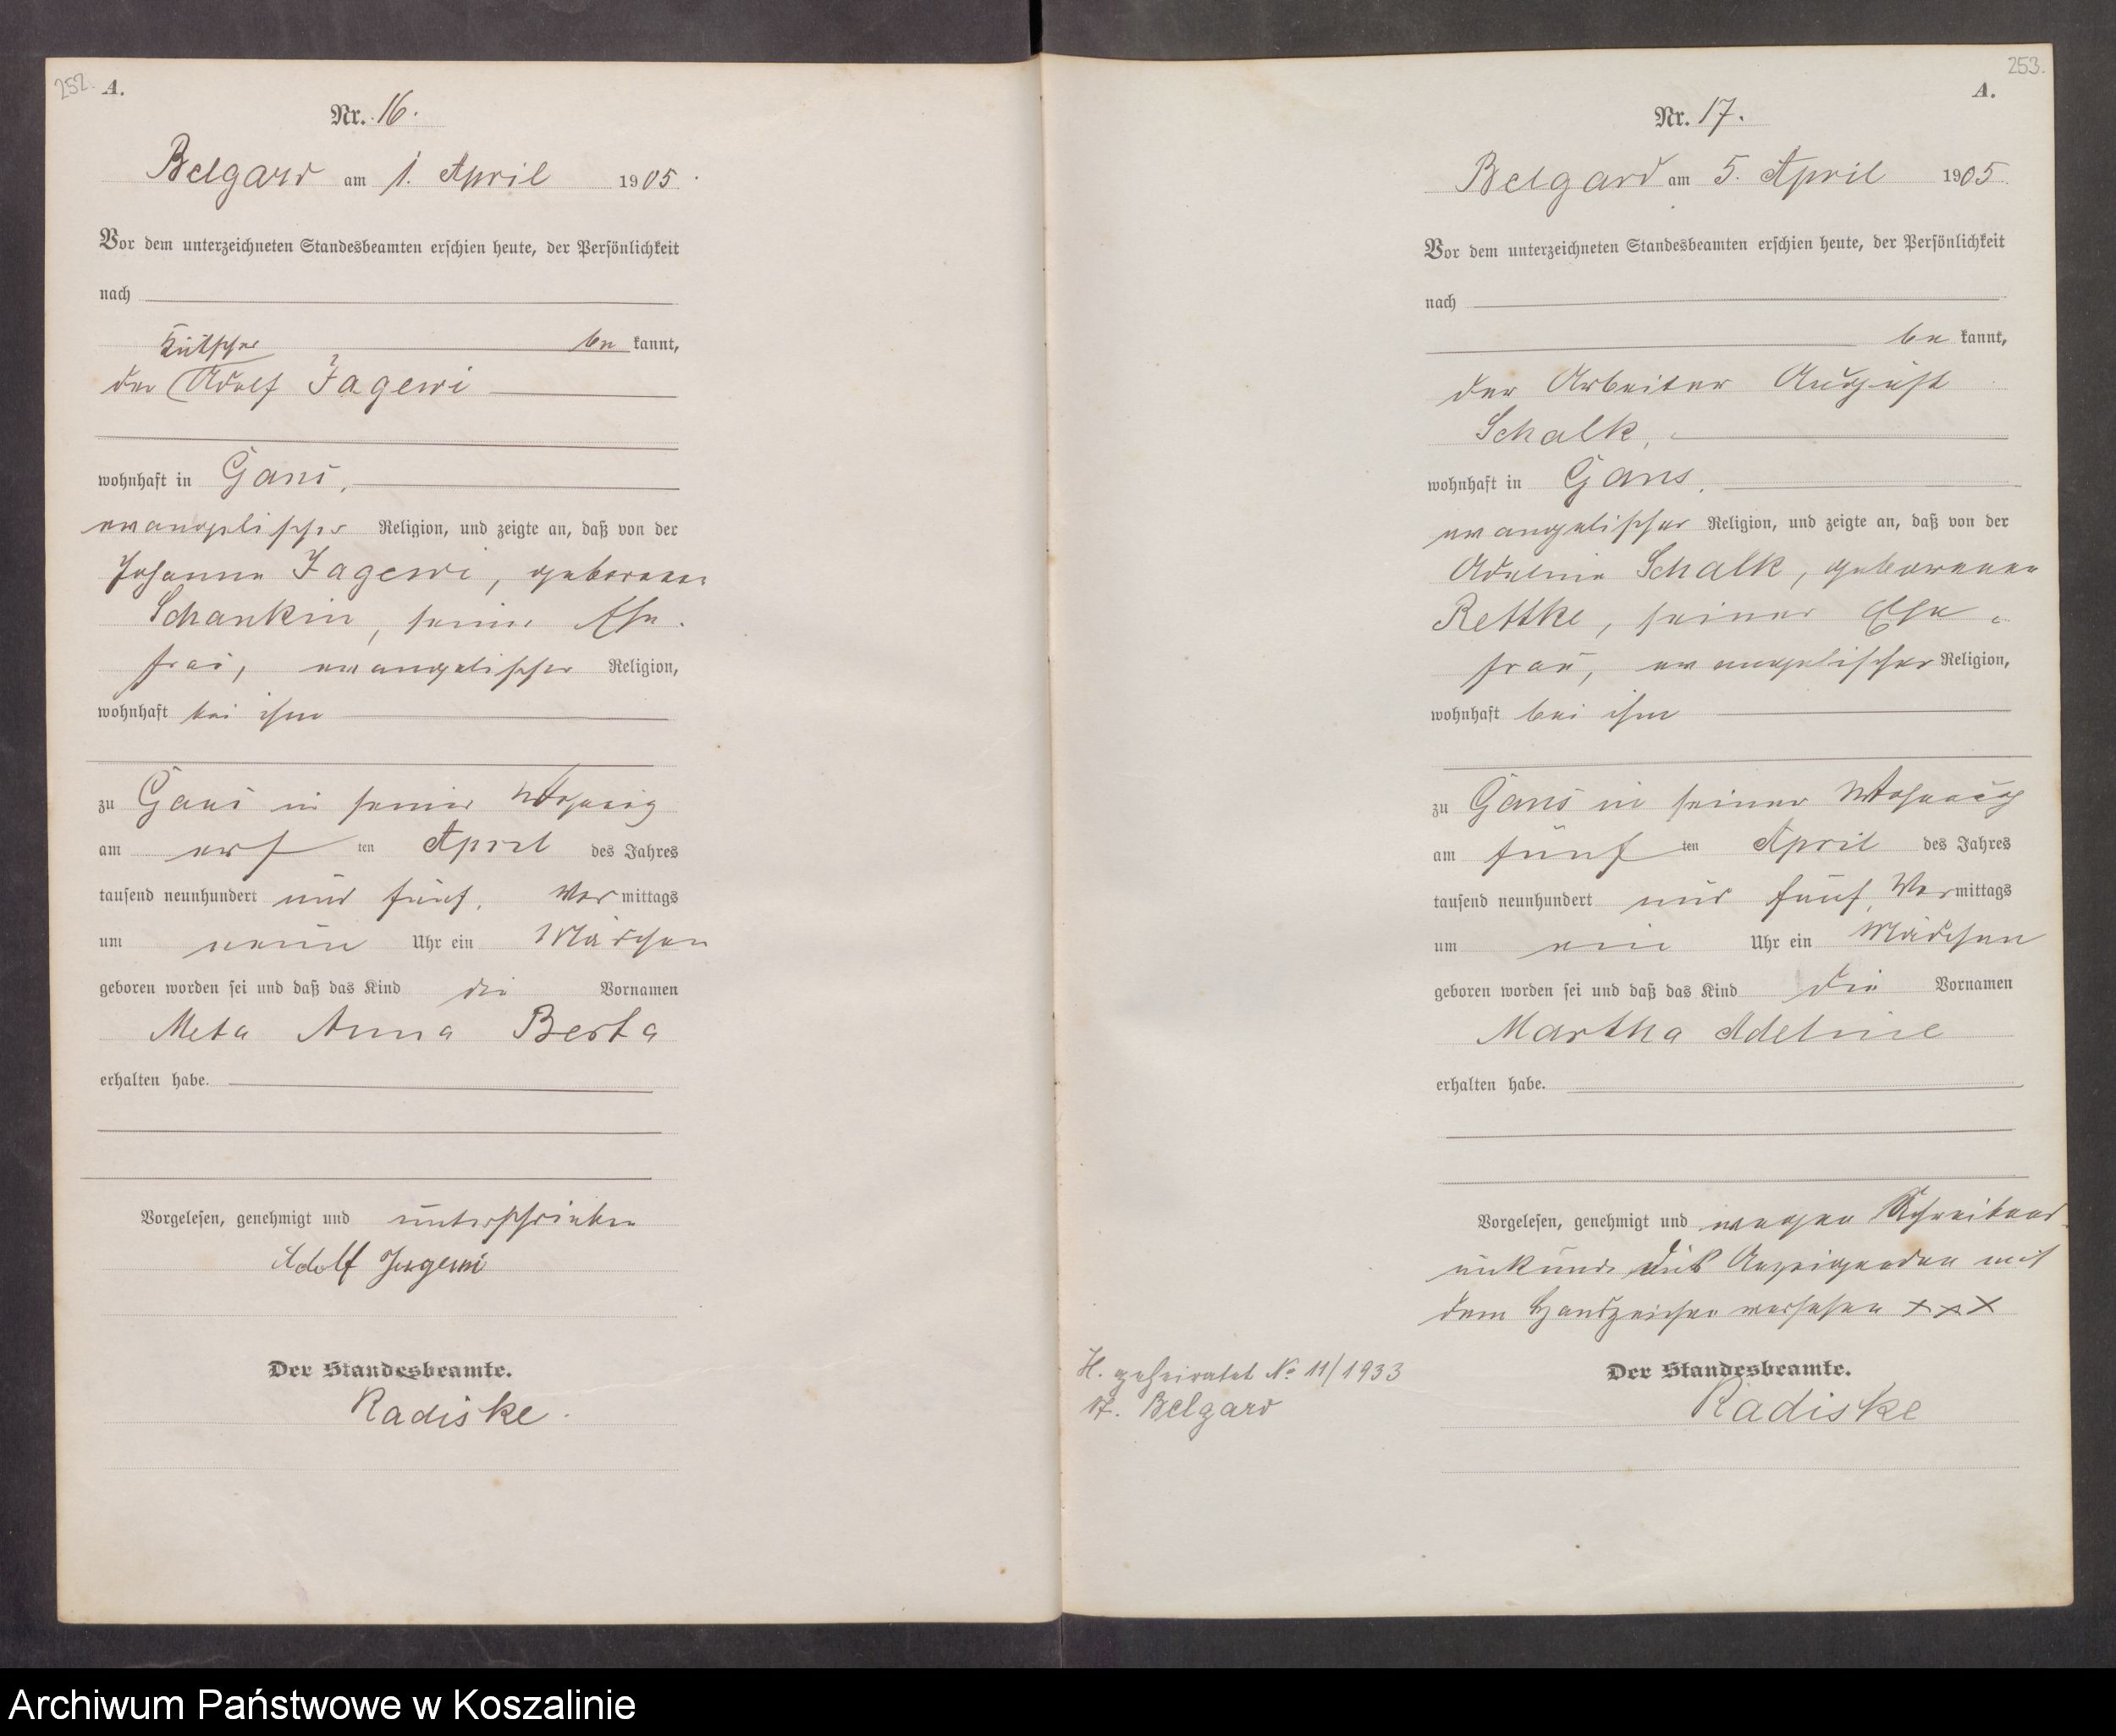 252. A.
Nr. 16.
Belgard am 1. April 1905.
Vor dem unterzeichneten Standesbeamten erschien heute, der Persönlichkeit
nach
Kutscher be kannt,
der Adolf Jagewi
wohnhaft in Gans,
evangelischer Religion, und zeigte an, daß von der
Johanna Jagewi, geborenen
Schankin, seiner Ehe-
frau, evangelischer Religion,
wohnhaft bei ihm
zu Gans in seiner Wohnung
am ersten April des Jahres
tausend neunhundert und fünf, Vormittags
um neun Uhr ein Mädchen
geboren worden sei und daß das Kind die Vornamen
Meta Anna Berta
erhalten habe.
Vorgelesen, genehmigt und unterschrieben
Adolf Jagewi
Der Standesbeamte.
Radiske.
253.
A.
Nr. 17.
Belgard am 5. April 1905.
Vor dem unterzeichneten Standesbeamten erschien heute, der Persönlichkeit
nach
be kannt,
der Arbeiter August
Schalk,
wohnhaft in Gans,
evangelischer Religion, und zeigte an, daß von der
Adeline Schalk, geborenen
Rettke, seiner Ehe-
frau, evangelischer Religion,
wohnhaft bei ihm
zu Gans in seiner Wohnung
am fünften April des Jahres
tausend neunhundert und fünf, Vormittags
um ein Uhr ein Mädchen
geboren worden sei und daß das Kind die Vornamen
Martha Adeline
erhalten habe.
Vorgelesen, genehmigt und wegen Schreibens-
unkunde des Anzeigenden mit
dem Handzeichen versehen x x x
Der Standesbeamte.
Radiske
H. geheiratet No 11/1933
St. Belgard
Archiwum Państwowe w Koszalinie